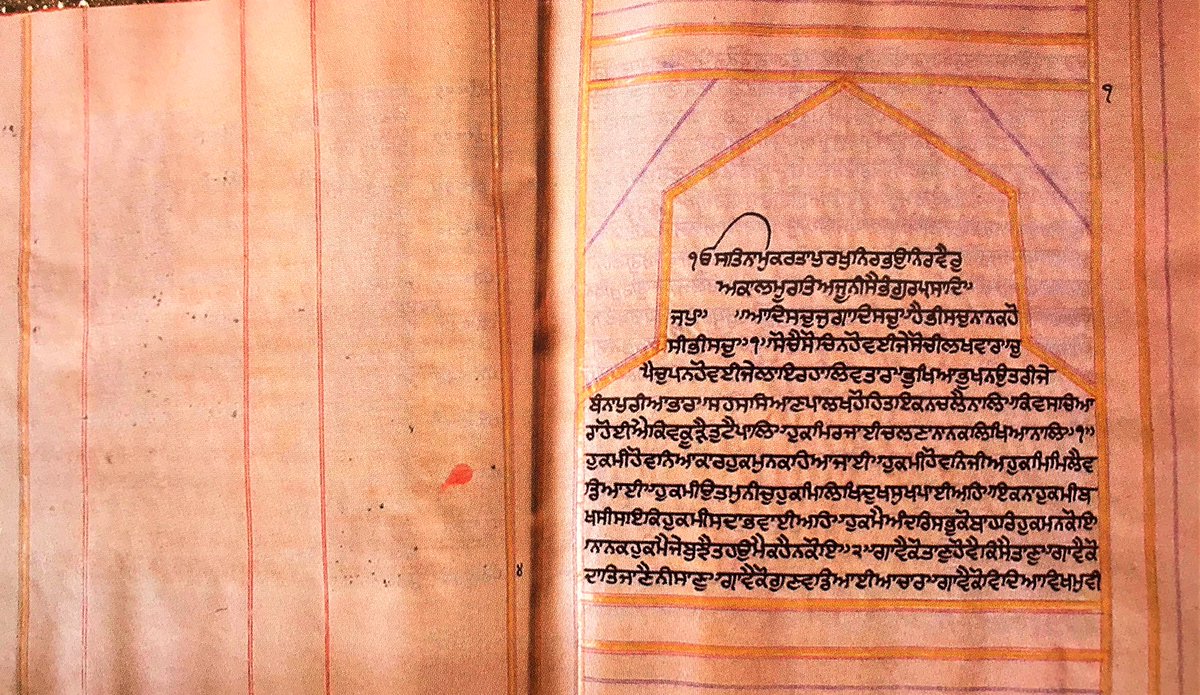 ੧
ੴਸਤਿਨਾਮੁਕਰਤਾਪੁਰਖੁਨਿਰਭਉਨਿਰਵੈਰੁ
ਅਕਾਲਮੂਰਤਿਅਜੂਨੀਸੈਭੰਗੁਰਪ੍ਰਸਾਦਿ॥
ਜਪੁ॥ ॥ਆਦਿਸਚੁਜੁਗਾਦਿਸਚੁ॥ਹੈਭੀਸਚੁਨਾਨਕਹੋ
ਸੀਭੀਸਚੁ॥੧॥ਸੋਚੈਸੋਚਿਨਹੋਵਈਜੇਸੋਚੀਲਖਵਾਰ॥ਚੁ
ਪੈਚੁਪਨਹੋਵਈਜੇਲਾਇਰਹਾਲਿਵਤਾਰ॥ਭੁਖਿਆਭੁਖਨਉਤਰੀਜੇ
ਬੰਨਾਪੁਰੀਆਭਾਰ॥ਸਹਸਸਿਆਣਪਾਲਖਹੋਹਿਤਾਇਕਨਚਲੈਨਾਲਿ॥ਕਿਵਸਚਿਆ
ਰਾਹੋਈਐਕਿਵਕੂੜੈਤੁਟੈਪਾਲਿ॥ਹੁਕਮਿਰਜਾਈਚਲਣਾਨਾਨਕਲਿਖਿਆਨਾਲਿ॥੧॥
ਹੁਕਮੀਹੋਵਨਿਆਕਾਰਹੁਕਮੁਨਕਹਿਆਜਾਈ॥ਹੁਕਮੀਹੋਵਨਿਜੀਅਹੁਕਮਿਮਿਲੈਵ
ਡਿਆਈ॥ਹੁਕਮੀਉਤਮੁਨੀਚੁਹੁਕਮਿਲਿਖਿਦੁਖਸੁਖਪਾਈਅਹਿ॥ਇਕਨਾਹੁਕਮੀਬ
ਖਸੀਸਇਕਿਹੁਕਮੀਸਦਾਭਵਾਈਅਹਿ॥ਹੁਕਮੈਅੰਦਰਿਸਭੁਕੋਬਾਹਰਿਹੁਕਮਨਕੋਇ
॥ਨਾਨਕਹੁਕਮੈਜੇਬੁਝੈਤਹਉਮੈਕਹੈਨਕੋਇ॥੨॥ਗਾਵੈਕੋਤਾਣੁਹੋਵੈਕਿਸੈਤਾਣੁ॥ਗਾਵੈਕੋ
ਦਾਤਿਜਾਣੈਨੀਸਾਣੁ॥ਗਾਵੈਕੋਗੁਣਵਡਿਆਈਆਚਾਰ॥ਗਾਵੈਕੋਵਿਦਿਆਵਿਖਮੁਵੀ
੪